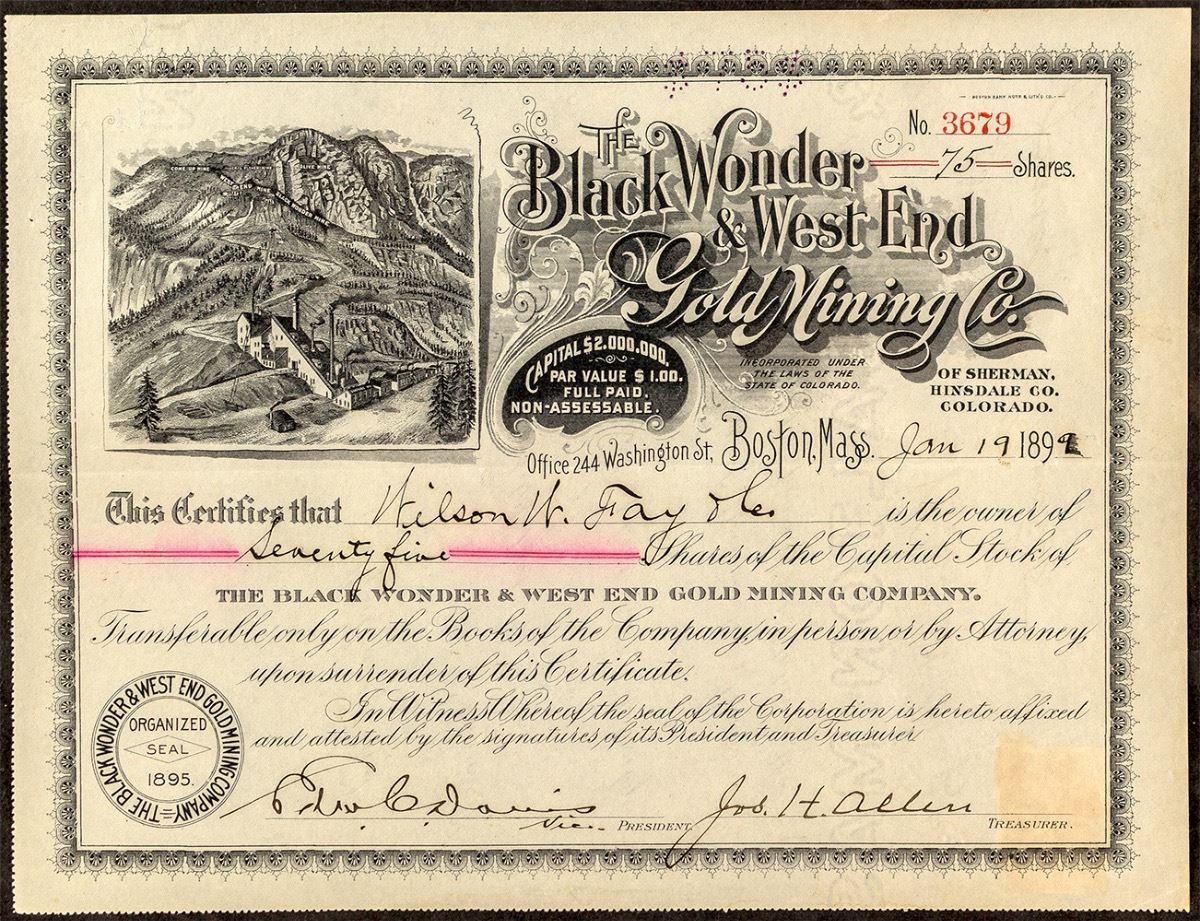 BOSTON BANK NOTE & LITH'G CO.
No. 3679
75 Shares.
THE
Black Wonder
& West End
Gold Mining Co.
CAPITAL $2.000.000.
PAR VALUE $1.00.
FULL PAID.
NON-ASSESSABLE.
INCORPORATED UNDER
THE LAWS OF THE
STATE OF COLORADO.
OF SHERMAN,
HINSDALE CO.
COLORADO.
Office 244 Washington St, Boston, Mass. Jan 19 1899
This Certifies that Wilson W. Fay & Co is the owner of
Seventy five Shares of the Capital Stock of
THE BLACK WONDER & WEST END GOLD MINING COMPANY.
Transferable only on the Books of the Company, in person or by Attorney,
upon surrender of this Certificate.
In Witness Whereof the seal of the Corporation is hereto affixed
and attested by the signatures of its President and Treasurer
THE BLACK WONDER & WEST END GOLD MINING COMPANY
ORGANIZED
SEAL
1895.
Edw C. Davis
Vice. PRESIDENT.
Jos. H. Allen
TREASURER.